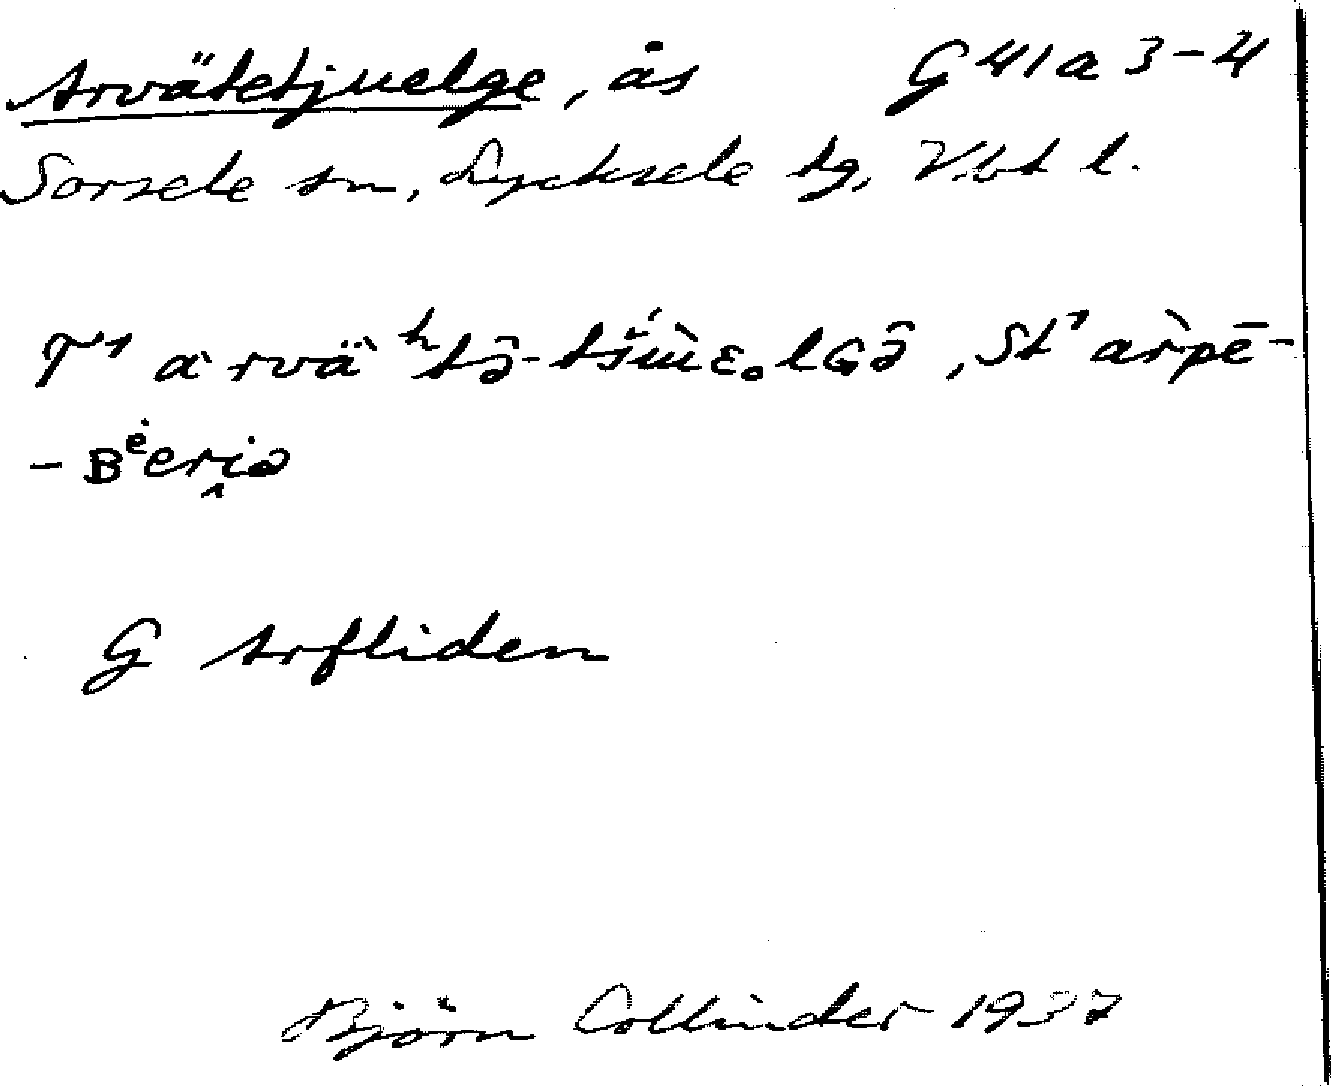 Arvätetjuelge, ås G 41 a 3-4
Sorsele sn, Lycksele tg, Vbt l.
T¹ àrvä̀ ʰtə̑-tšù̀ɛₒlGə̑, St¹ àr̀pē-
- Bᵉeri̯ə
G Arfliden
Björn Collinder 1937